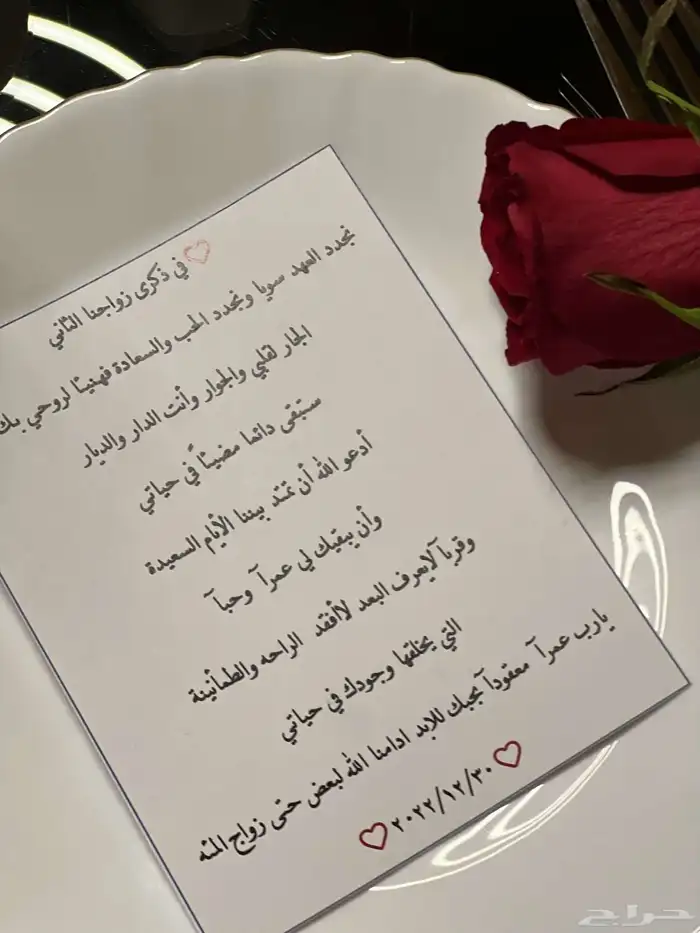 في ذكرى زواجنا الثاني
نجدد العهد سويا ونجدد الحب والسعادة فهنيئا لروحي بك
الجار لقلبي والجوار وأنت الدار والديار
ستبقى دائما مضيئاً في حياتي
أدعو الله أن تمتد بيننا الأيام السعيدة
وأن يبقيك لي عمرآ وحبآ
وقربآ لايعرف البعد لاأفقد الراحه والطمأنينة
التي يخلقها وجودك في حياتي
يارب عمرآ معقودآ بحبك للابد ادامنا الله لبعض حتى زواج المئه
٢٠٢٢/١٢/٣٠
حراج